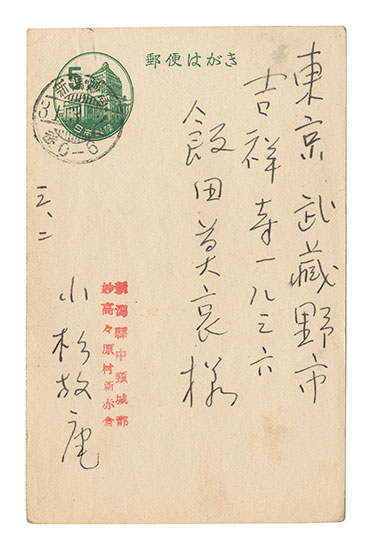 郵便はがき
5
日本郵便
東京 武蔵野市
吉祥寺一八三六
飯田莫哀様
新潟縣中頸城郡
妙高々原村新赤倉
小杉放庵
三、二